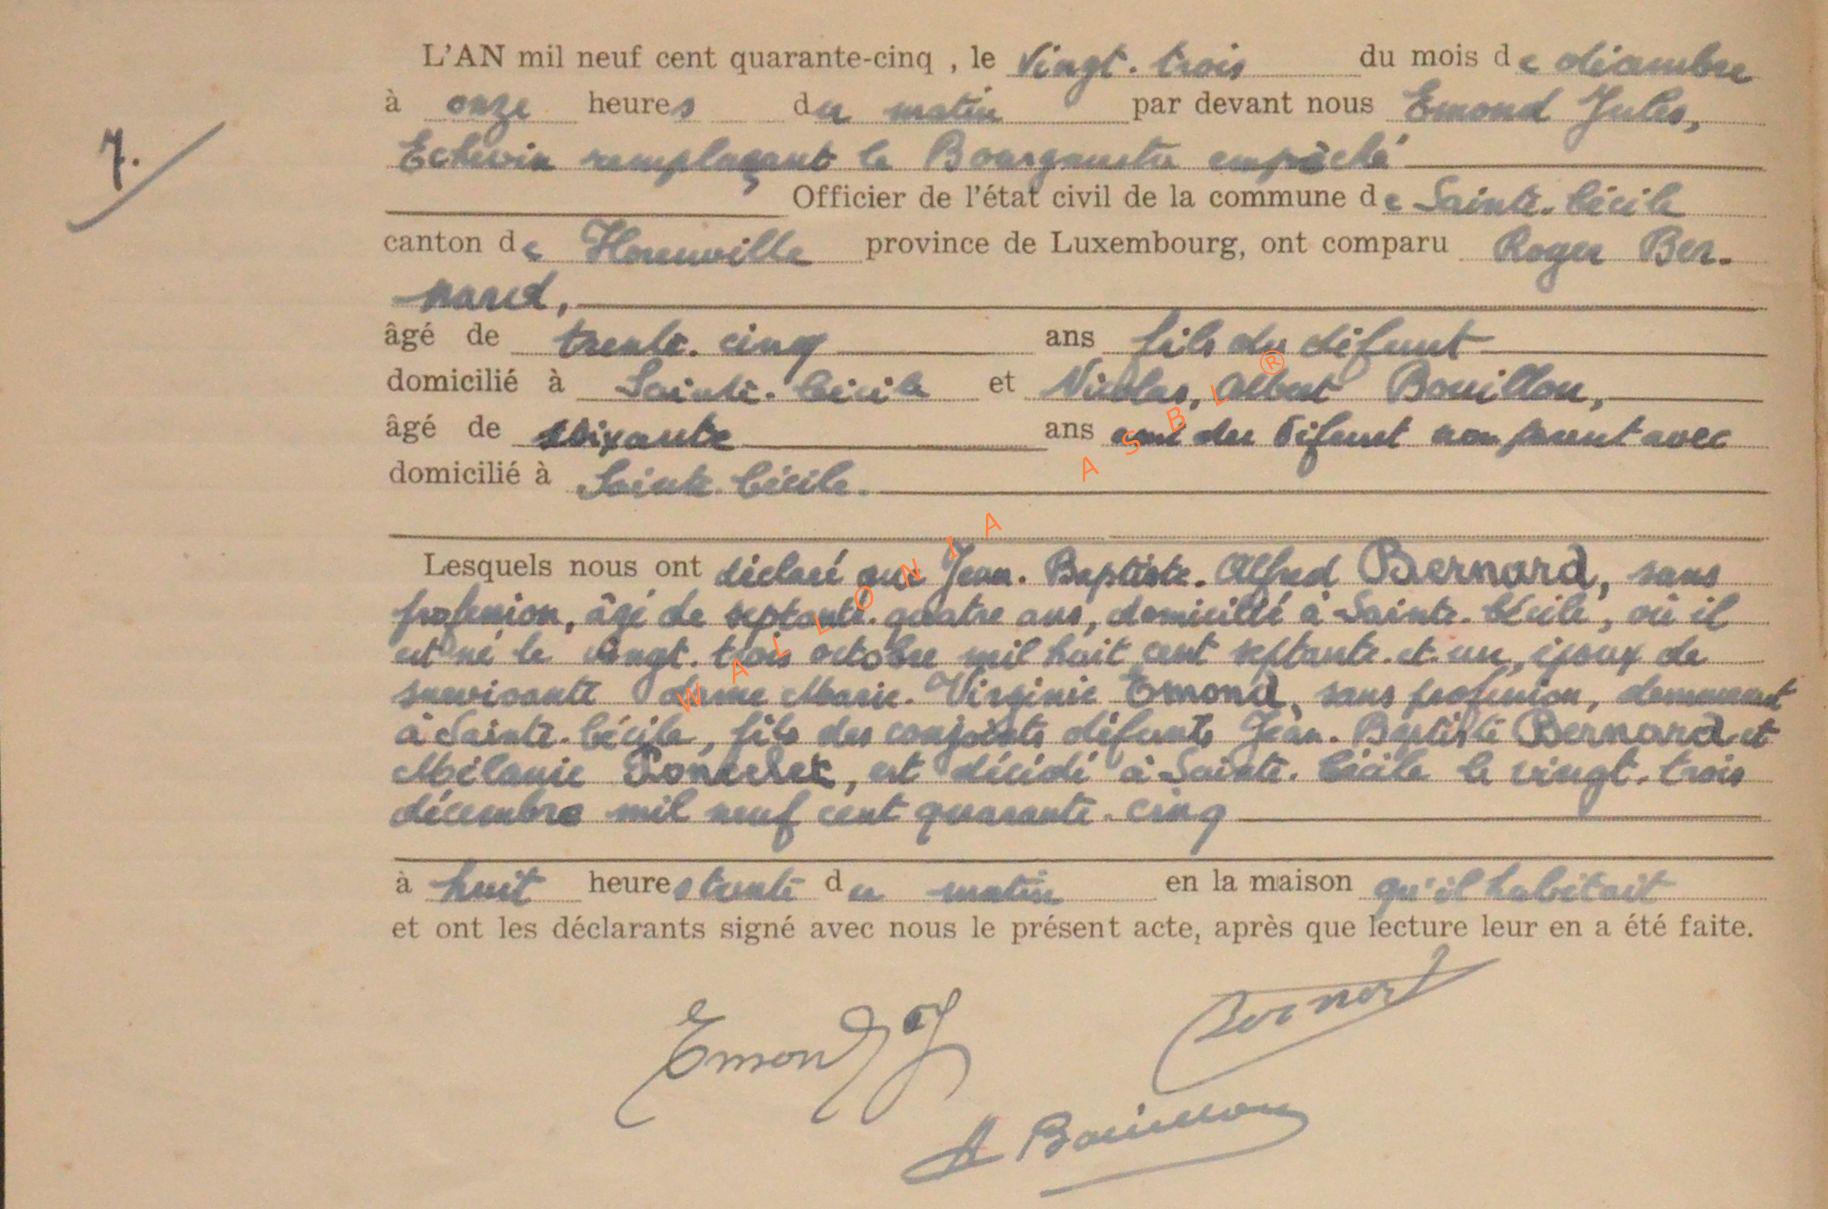 L'AN mil neuf cent quarante-cinq , le vingt-trois du mois de décembre
à onze heures du matin par devant nous Emond Jules,
7.
Echevin remplaçant le Bourgmestre empêché
Officier de l'état civil de la commune de Sainte-Cécile
canton de Florenville province de Luxembourg, ont comparu Roger Ber-
nard,
âgé de trente-cinq ans fils du défunt
domicilié à Sainte-Cécile et Nicolas, Albert Bouillon,
âgé de soixante ans ami du défunt non parent avec
domicilié à Sainte-Cécile.
Lesquels nous ont déclaré que Jean-Baptiste-Alfred Bernard, sans
profession, âgé de septante-quatre ans, domicilié à Sainte-Cécile, où il
est né le vingt-trois octobre mil huit cent septante-et-un, époux de
survivante dame Marie-Virginie Emond, sans profession, demeurant
à Sainte-Cécile, fils des conjoints défunts Jean-Baptiste Bernard et
Mélanie Poncelet, est décédé à Sainte-Cécile le vingt-trois
décembre mil neuf cent quarante-cinq
à huit heures trente du matin en la maison qu'il habitait
et ont les déclarants signé avec nous le présent acte, après que lecture leur en a été faite.
Emond J
Bernard
A Bouillon
WALLONIA ASBL ®